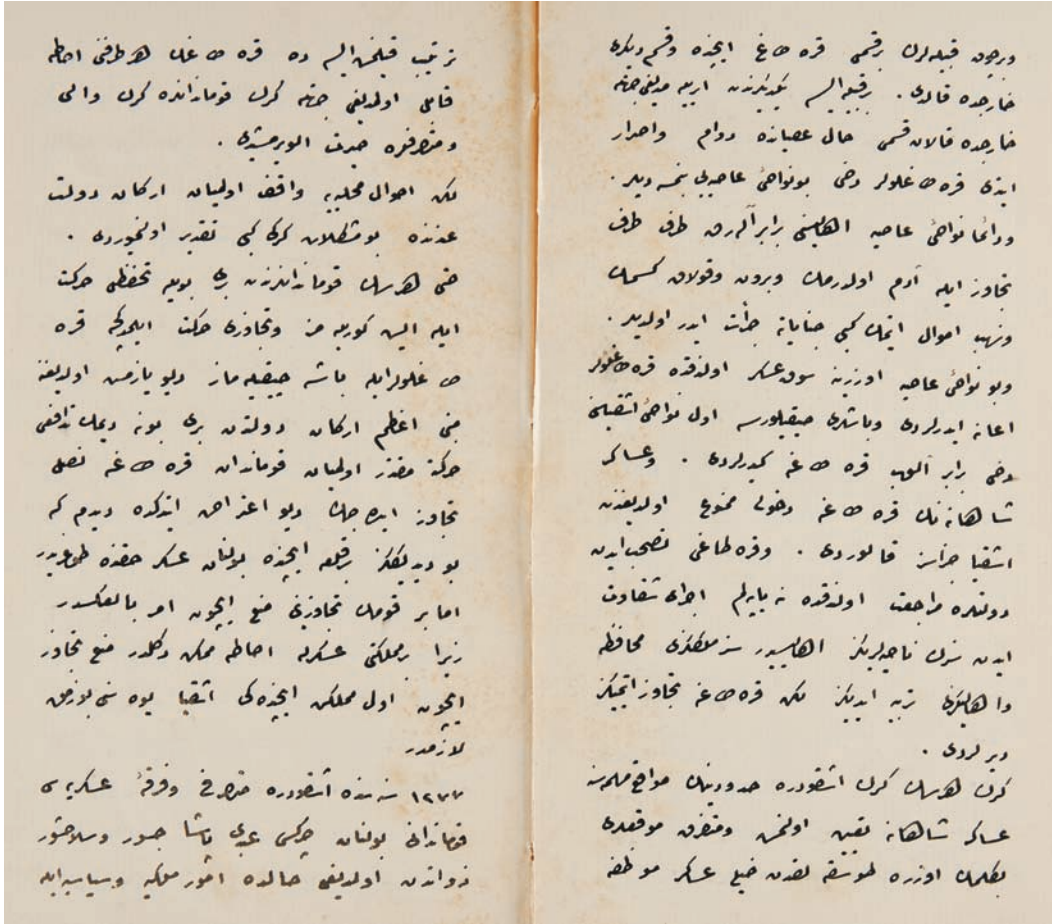 وبرچوق قبیله‌لرك برقسمی قره طاغ ایچنده وقسم دیكری
خارجده قالدی . برقبیله ایسه یكدیكرندن آیریله‌مدیغی جهتله
خارجده قالان قسمی حال عصیانده دوام واصرار
ایتدی قره طاغلولر دخی بو نواحئ عاصیه‌یی بنمسه‌دیلر .
ودائما نواحئ عاصیه اهالیسنی برابر آله‌رق طرف طرف
تجاوز ایله آدم اولدرمك وبرون وقولاق كسمك
ونهب اموال ایتمك كبی جنایاته جرأت ایدر اولدیلر .
وبو نواحئ عاصیه اوزرینه سوق عسكر اولندقده قره طاغلولر
اعانه ایدرلردی وباشلری صیقیلورسه اول نواحئ اشقیاسنی
دخی برابر آلوب قره طاغه كیدرلردی . وعساكر
شاهانه‌نك قره طاغه دخولی ممنوع اولدیغندن
اشقیا جزاسز قالوردی . وقره طاغی تصحب ایدن
دولتلره مراجعت اولندقده نه یاپه‌لم اجرای شقاوت
ایدن سزك ناحیه‌لریكز اهالیسیدر سز ملككزی محافظه
واهالیكزی تربیه ایدیكز لكن قره طاغه تجاوز ایتمیكز
دیرلردی .
كرك هرسك كرك اشقودره حدودینك مواقع مهمه‌سنه
عساكر شاهانه تعیین اولنمش ومتفرق موقعلری
بكلمك اوزره طوسقه‌لقدن خیلی عسكر موظفه
ترتیب قیلنمش ایسه ده قره طاغك هر طرفنی احاطه
قابل اولمدیغی جهتله كرك قومانداننده كرك والی
ومتصرفلره حیرت الویرمشیدی .
لكن احوال محلیه‌یه واقف اولمیان اركان دولت
عندنده بو مشكلات كركی كبی تقدیر اولنمیوردی .
حتی هرسك قوماندانلرندن بری بویله تحفظی حركت
ایله ایش كوریله‌مز وتجاوزی حركت ایلمدكجه قره
طاغلولر ایله باشه چیقیله‌ماز دیو یازمش اولدیغنه
مبنی اعظم اركان دولتدن بری بونه دیمك تدافعی
حركته مقتدر اولمیان قوماندان قره طاغه نصل
تجاوز ایده‌جك دیو اعتراض ایتدكده دیدم كه
بو دیدیككز بر قلعه ایچنده بولنان عسكر حقنده طوغریدر
اما بر قومك تجاوزینی منع ایچون امر بالعكسدر
زیرا بر مملكتی عسكرله احاطه ممكن دكلدر منع تجاوز
ایچون اول مملكتك ایچنده‌كی اشقیا یوه‌سنی بوزمق
لازمدر
١٢٧٧ سنه‌سنده اشقودره متصرفی وفرقۀ عسكریه‌سی
قوماندانی بولنان چركس عبدی پاشا جسور وسلاحشور
ذواتدن اولدیغی حالده امور ملكیه وسیاسیه‌ایله